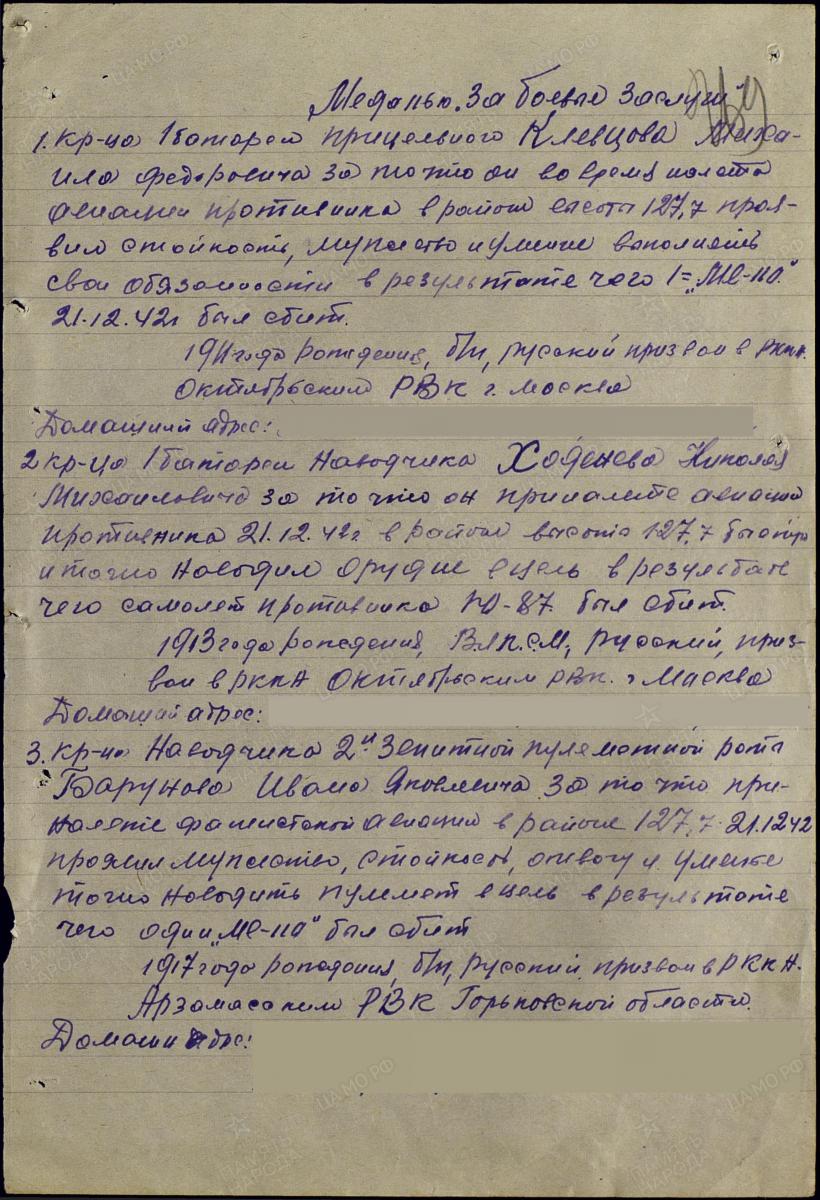 „Медалью „За боевые заслуги"
1. Кр-ца 1 батареи прицельного Клевцова Миха-
ила Федоровича за то что он во время налета
авиации противника в районе высоты 127,7 проя-
вил стойкость, мужество и умение выполнять
свои обязанности в результате чего 1= „МЕ-110"
21.12.42г был сбит.
1911 года рождения, б/п, русский призван в РККА.
Октябрьским РВК г. Москва
Домашний адрес:
2 Кр-ца 1 батареи наводчика Ходенева Николая
Михаиловича за то что он при налете авиации
противника 21.12.42г в районе высоты 127,7 быстро
и точно наводил орудие в цель в результате
чего самолет противника Ю-87 был сбит.
1913 года рождения, ВЛКСМ, русский, приз-
ван в РККА Октябрьским РВК. г Москва
Домаший адрес:
3. Кр-ца наводчика 2й Зенитной пулеметной роты
Барунова Ивана Яковлевича за то что при-
налете фашистской авиации в районе 127,7 21.12 42
проявил мужество, стойкость, отвагу и умение
точно наводить пулемет в цель в результате
чего один „МЕ-110" был сбит
1917 года рождения, б/п, русский, призван в РККА.
Арзамасским РВК Горьковской области.
Домашн адрес:
ЦАМО.РФ
ПАМЯТЬ
НАРОДА